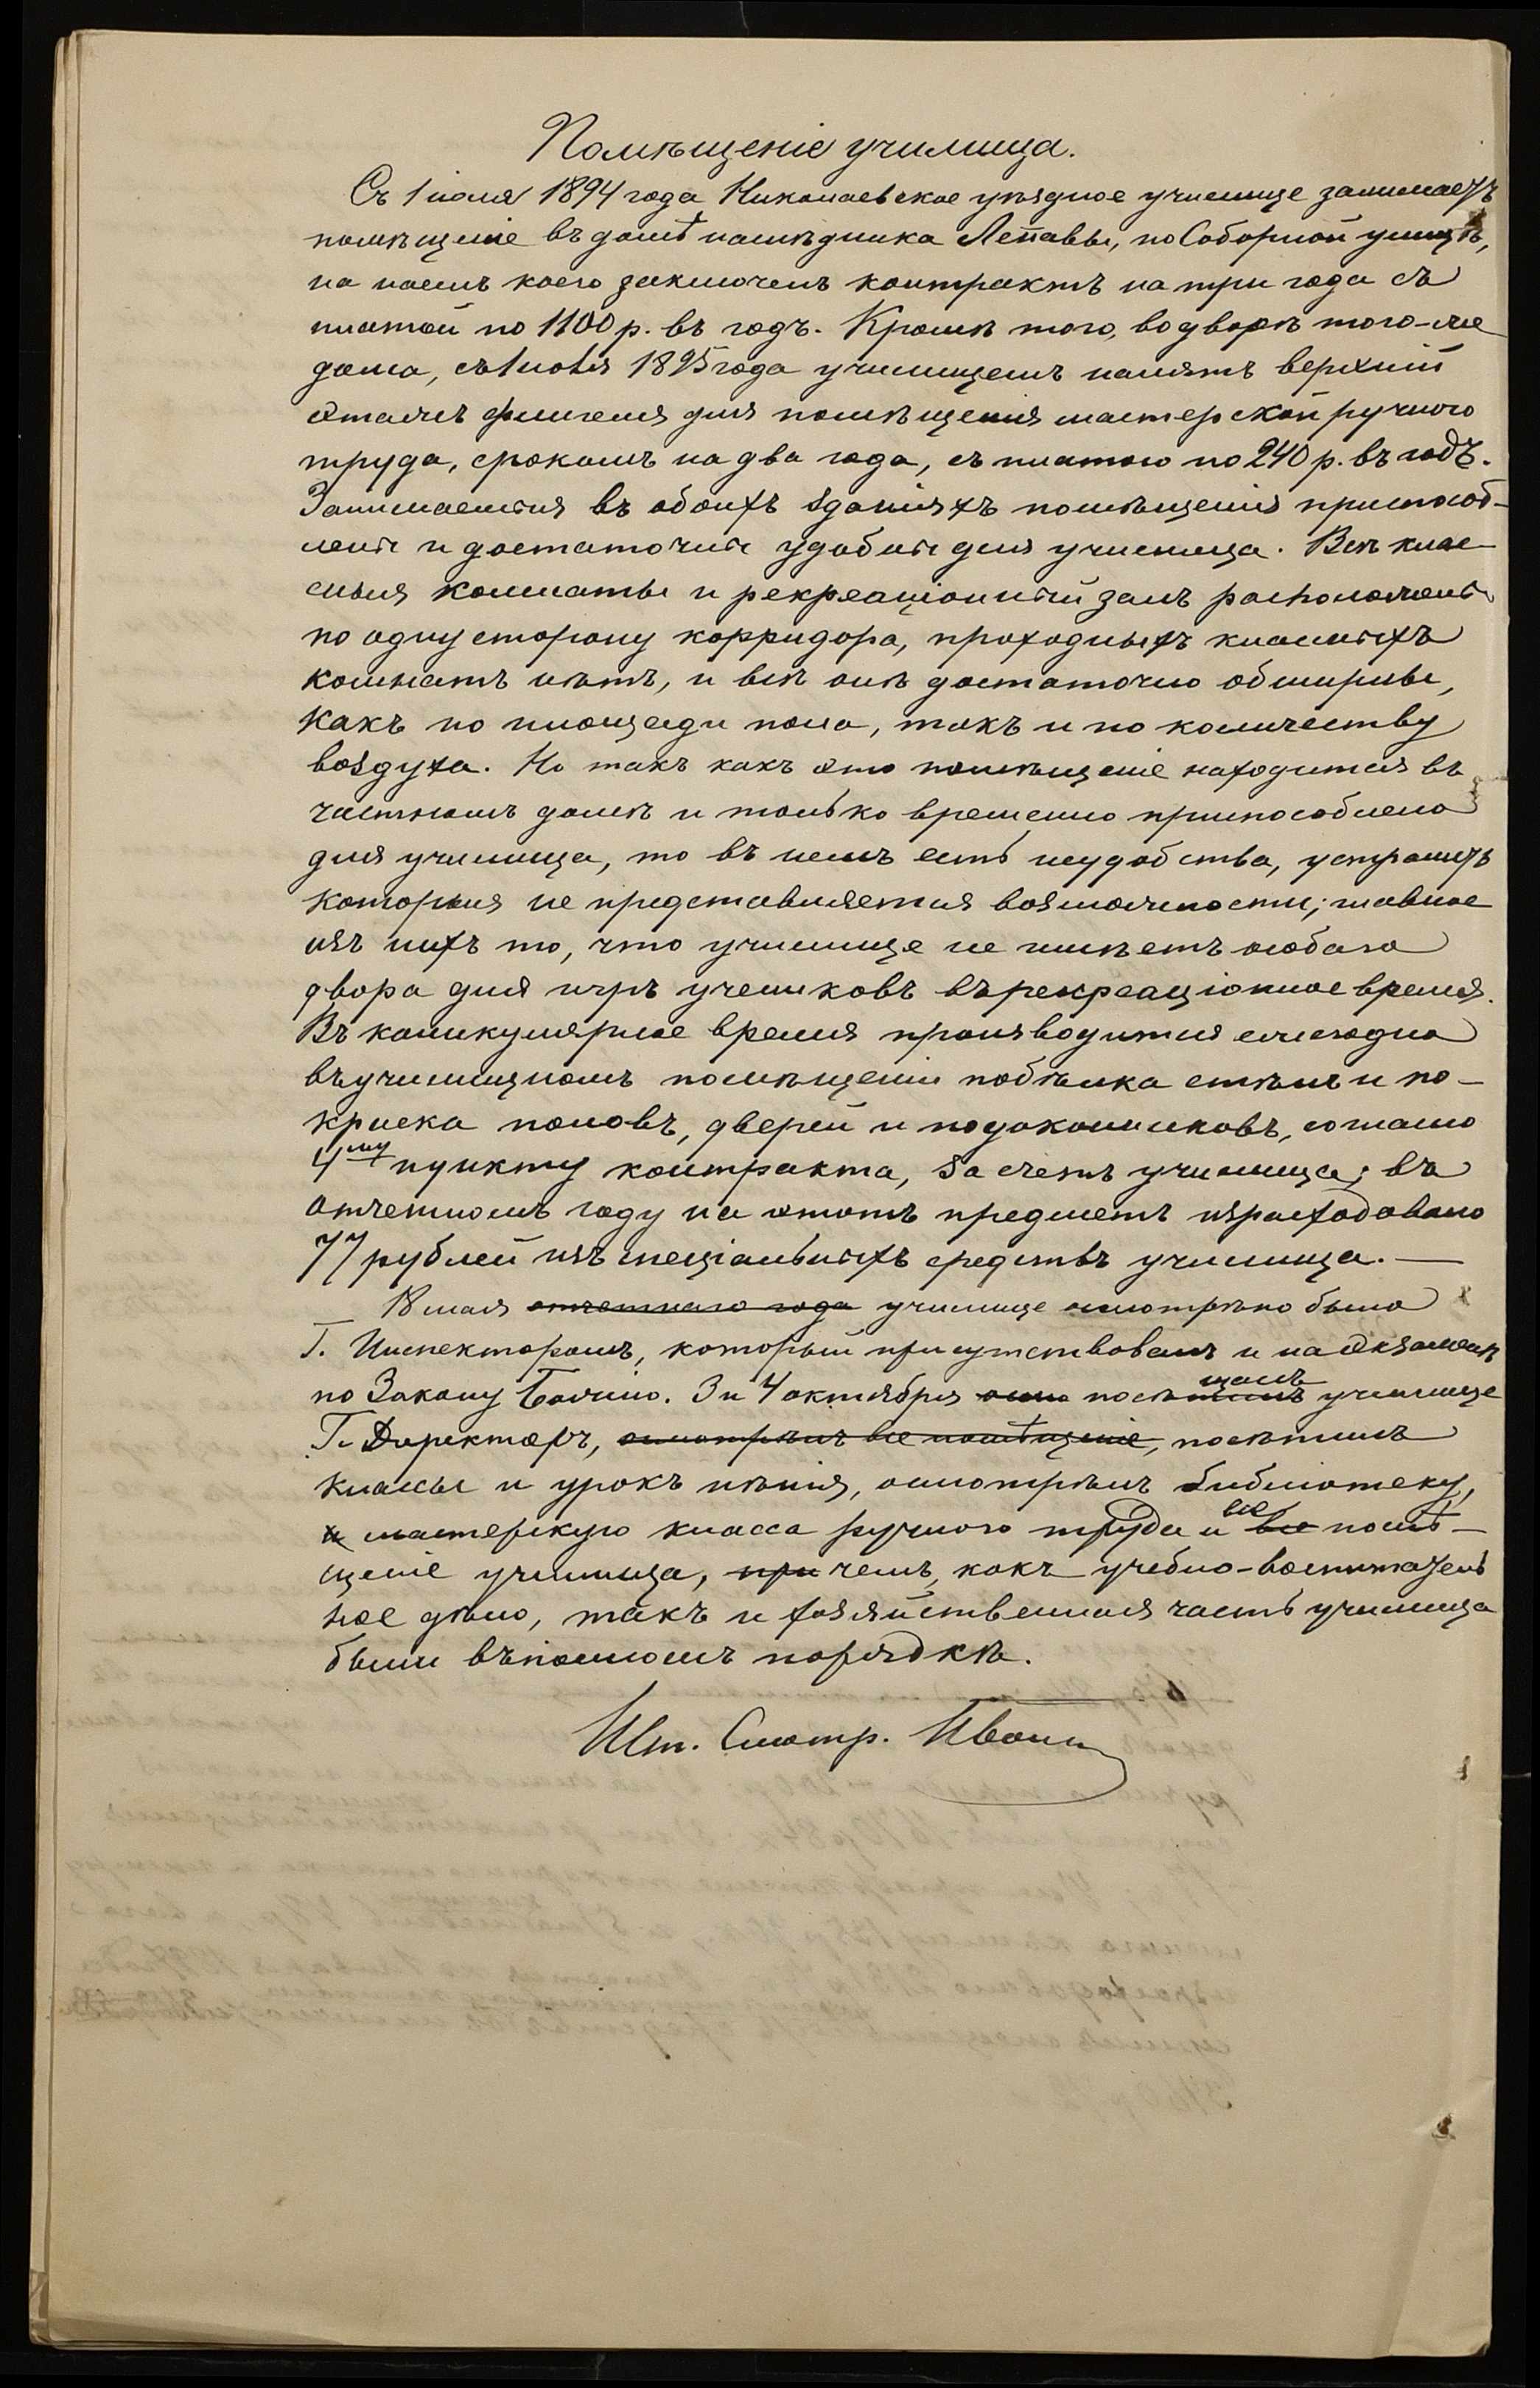 Помѣщеніе училища.
Съ 1 іюля 1894 года Николаевское уѣздное училище занимаетъ
помѣщеніе въ домѣ наслѣдника Лепавы, по Соборной улицѣ,
на наемъ коего заключенъ контрактъ на три года съ
платой по 1100 р. въ годъ. Кромѣ того, во дворѣ того-же
дома, съ 1 іюля 1895 года училищемъ нанятъ верхній
этажъ флигеля для помѣщенія мастерской ручного
труда, срокомъ на два года, съ платою по 240 р. въ годъ.
Занимаемыя въ обоихъ зданіяхъ помѣщенія приспособ-
лены и достаточны удобны для училища. Всѣ клас-
сныя комнаты и рекреаціонный залъ расположены
по одну сторону корридора, проходныхъ классныхъ
комнатъ нѣтъ, и всѣ онѣ достаточно обширны,
какъ по площади пола, такъ и по количеству
воздуха. Но такъ какъ это помѣщеніе находится въ
частномъ домѣ и только временно приспособлено
для училища, то въ немъ есть неудобства, устранить
которыя не представляется возможности; главное
изъ нихъ то, что училище не имѣетъ особаго
двора для игръ учениковъ въ рекреаціонное время.
Въ каникулярное время производится ежегодно
въ училищномъ помѣщеніи побѣлка стѣнъ и по-
краска половъ, дверей и подоконниковъ, согласно
4му пункту контракта, за счетъ училища; въ
отчетномъ году на этотъ предметъ израсходовано
77 рублей изъ спеціальныхъ средствъ училища. —
18 мая отчетнаго года училище осмотрѣно было
Г. Инспекторомъ, который присутствовалъ и на экзаменѣ
по Закону Божію. 3 и 4 октября посѣщалъ училище
Г. Директоръ, осмотрѣлъ все помѣщеніе, посѣтилъ
классы и урокъ пѣнія, осмотрѣлъ библіотеку,
и мастерскую класса ручного труда и все помѣ-
щеніе училища, при чемъ, какъ учебно-воспитатель
ное дѣло, такъ и хозяйственная часть училища
были въ полномъ порядкѣ.
Шт. Смотр. Иванъ